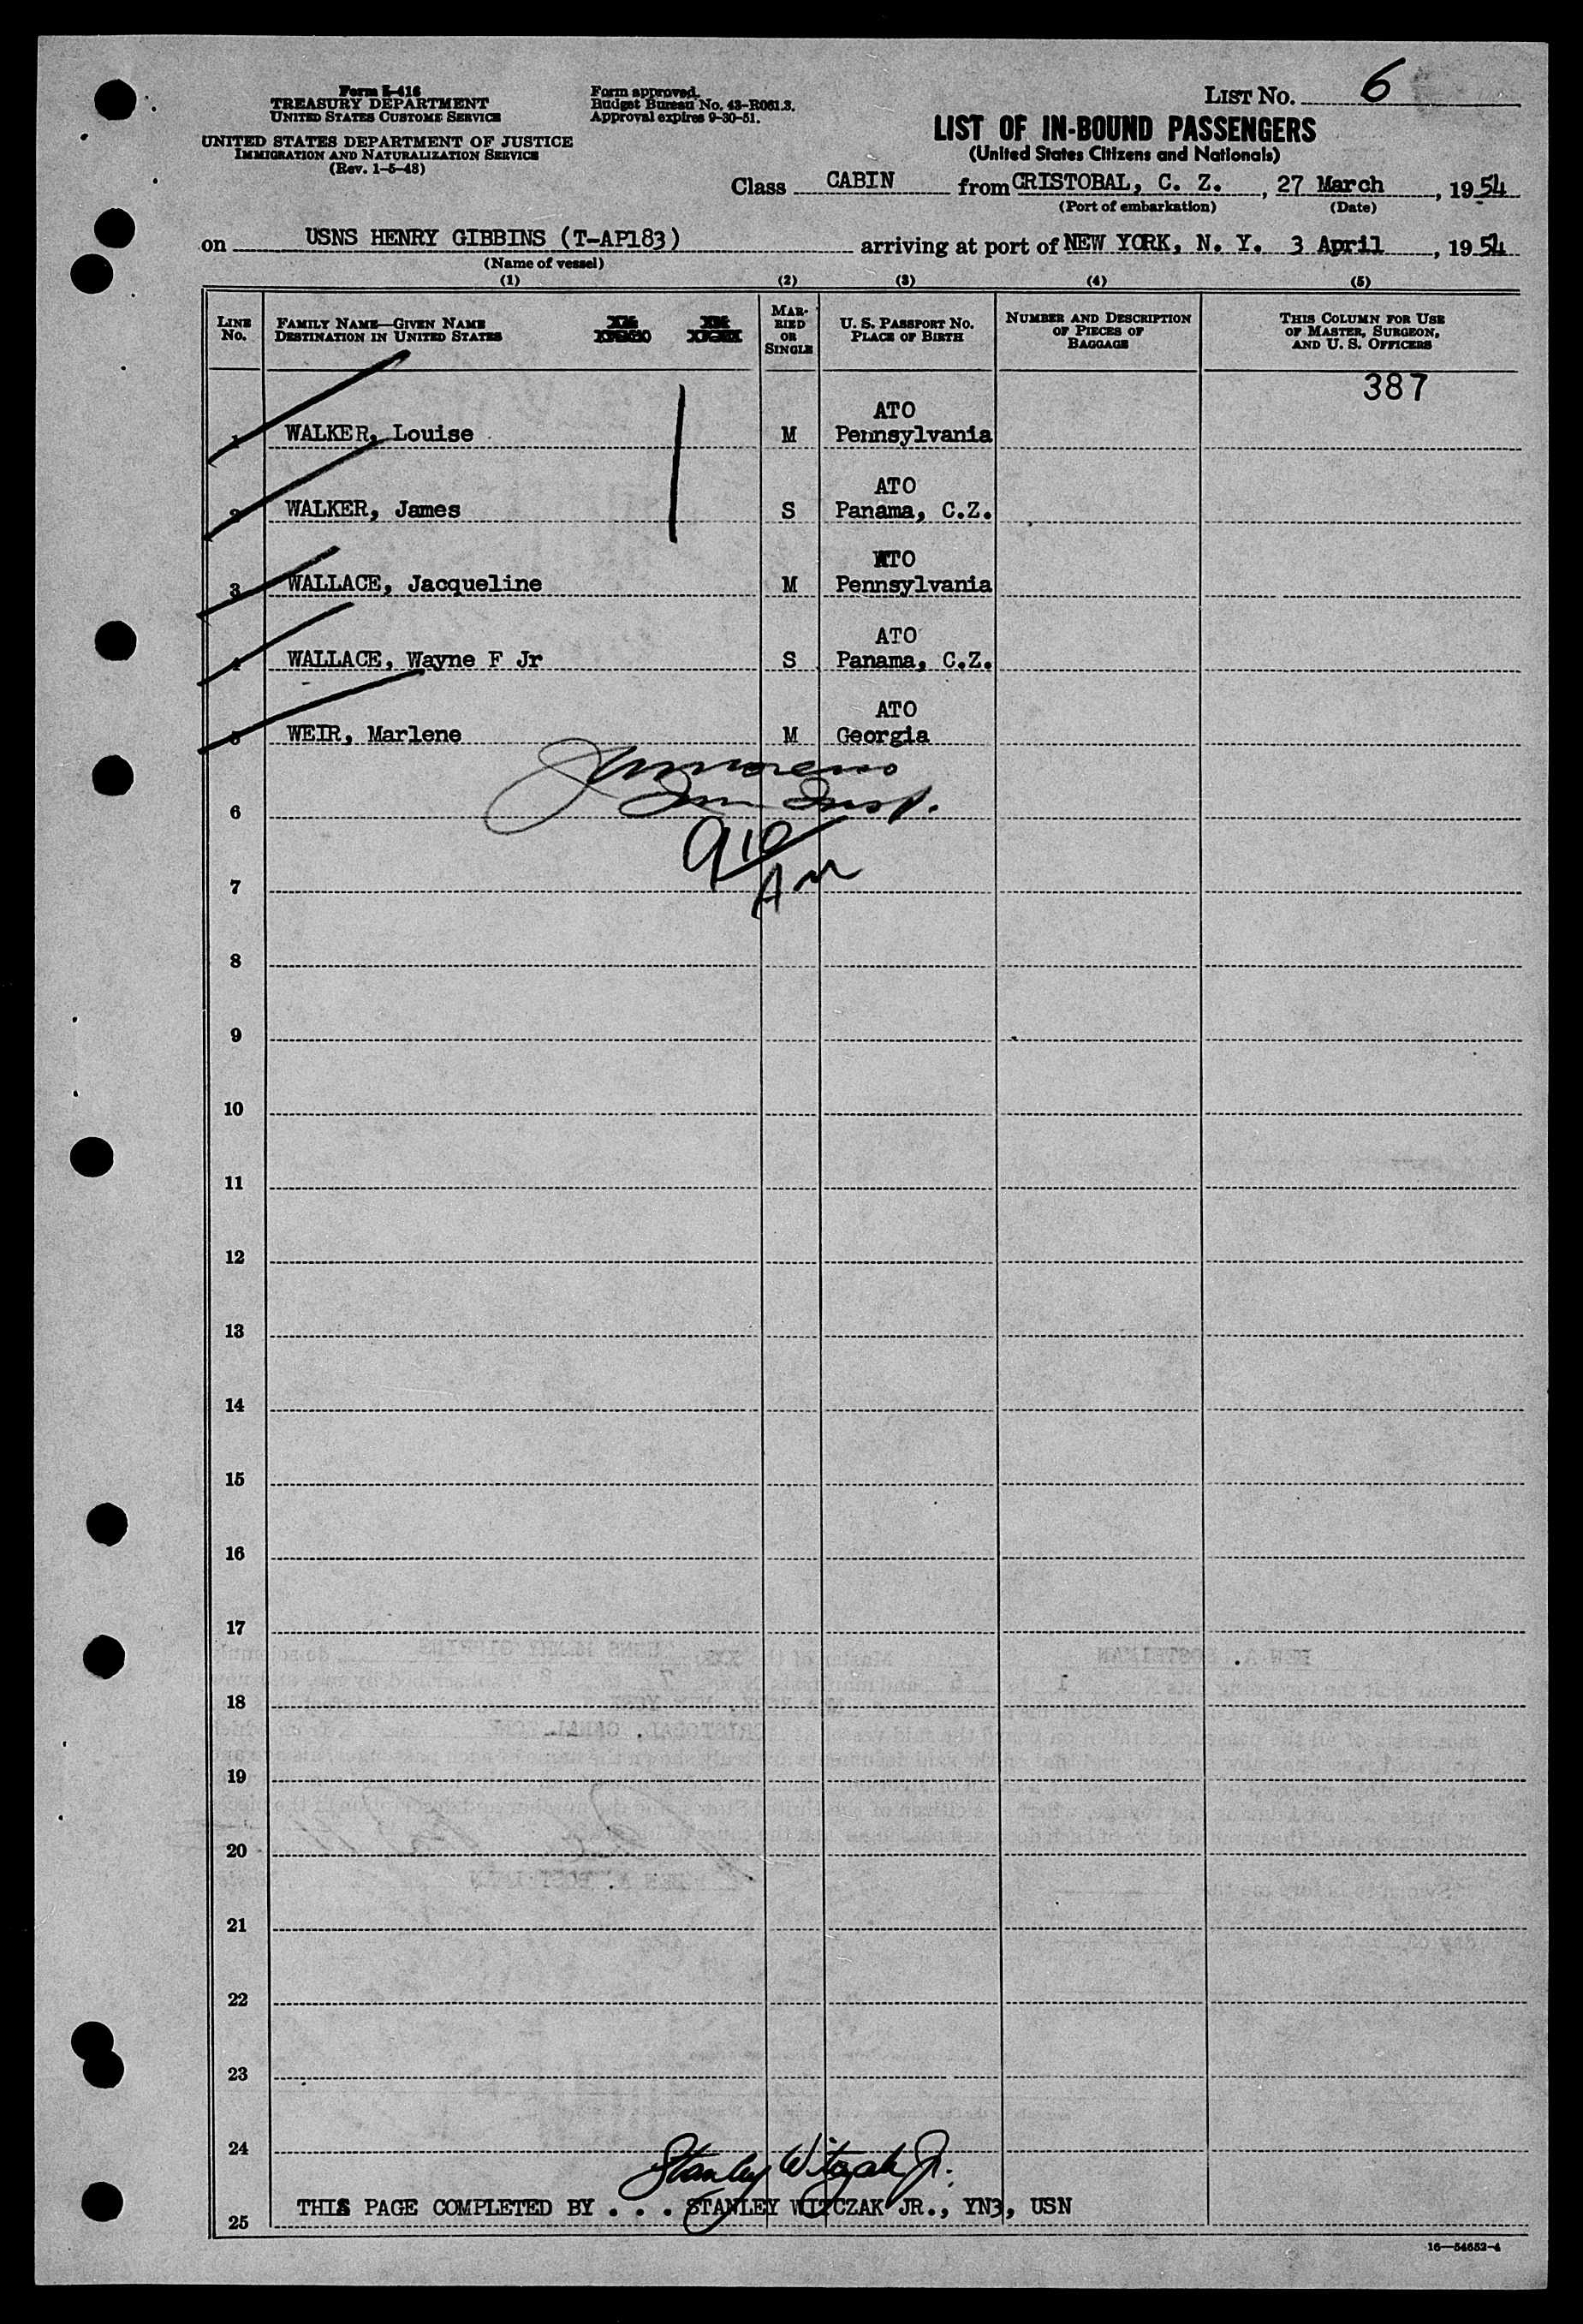 Form I-416
TREASURY DEPARTMENT
UNITED STATES CUSTOMS SERVICE
UNITED STATES DEPARTMENT OF JUSTICE
IMMIGRATION AND NATURALIZATION SERVICE
(Rev. 1-5-48)
Form approved.
Budget Bureau No. 43-R061.3.
Approval expires 9-30-51.
LIST NO. 6
LIST OF IN-BOUND PASSENGERS
(United States Citizens and Nationals)
Class CABIN from CRISTOBAL, C. Z., 27 March, 1954
(Port of embarkation) (Date)
on USNS HENRY GIBBINS (T-AP183) arriving at port of NEW YORK, N. Y. 3 April, 1954
(Name of vessel)
(1) (2) (3) (4) (5)
LINE NO. FAMILY NAME—GIVEN NAME DESTINATION IN UNITED STATES MARRIED OR SINGLE U. S. PASSPORT NO. PLACE OF BIRTH NUMBER AND DESCRIPTION OF PIECES OF BAGGAGE THIS COLUMN FOR USE OF MASTER, SURGEON, AND U. S. OFFICERS
387
ATO
1 WALKER, Louise M Pennsylvania
ATO
2 WALKER, James S Panama, C.Z.
ATO
3 WALLACE, Jacqueline M Pennsylvania
ATO
4 WALLACE, Wayne F Jr S Panama, C.Z.
ATO
5 WEIR, Marlene M Georgia
Imm Insp.
6
910
AM
7
8
9
10
11
12
13
14
15
16
17
18
19
20
21
22
23
24
Stanley Witczak Jr.
25 THIS PAGE COMPLETED BY . . . STANLEY WITCZAK JR., YN3, USN
16—54652-4